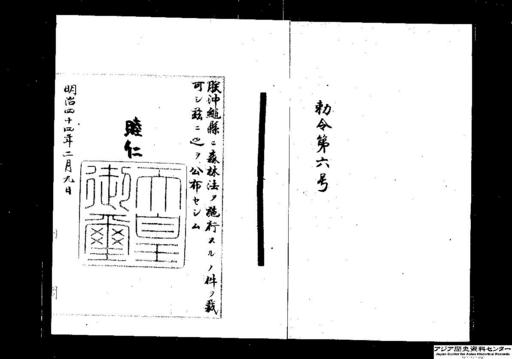 勅令第六号
朕沖縄縣ニ森林法ヲ施行スルノ件ヲ裁
可シ茲ニ之ヲ公布セシム
睦仁
天皇
御璽
明治四十四年二月九日
アジア歴史資料センター
Japan Center for Asian Historical Records